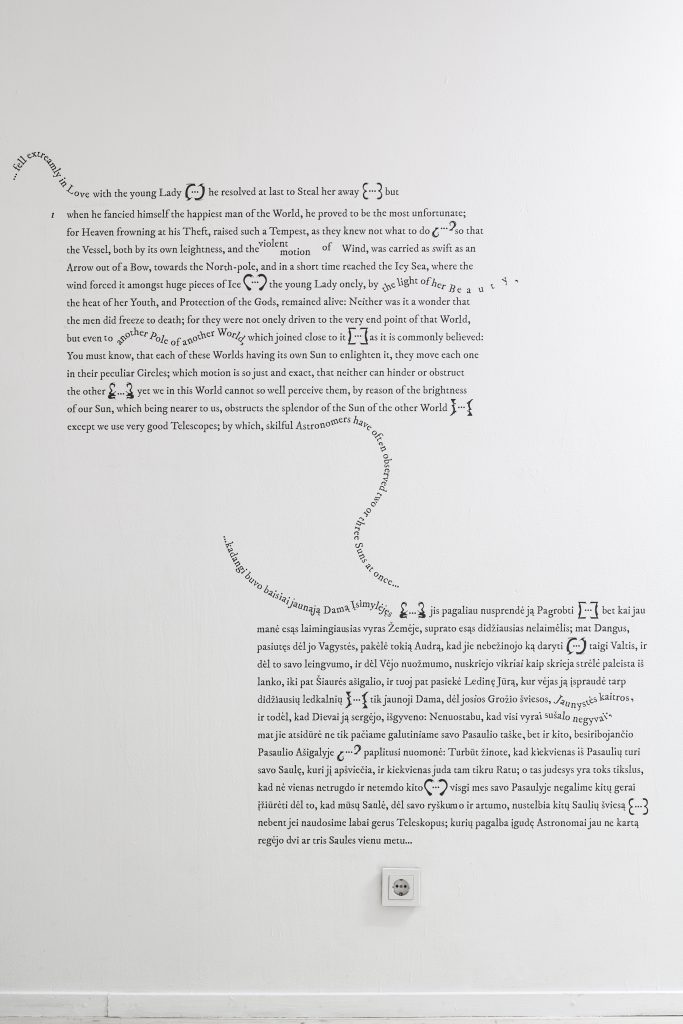 ...fell extreamly in Love with the young Lady {...} he resolved at last to Steal her away {...} but
1 when he fancied himself the happiest man of the World, he proved to be the most unfortunate;
for Heaven frowning at his Theft, raised such a Tempest, as they knew not what to do ¿...? so that
the Vessel, both by its own leightness, and the violent motion of Wind, was carried as swift as an
Arrow out of a Bow, towards the North-pole, and in a short time reached the Icy Sea, where the
wind forced it amongst huge pieces of Ice (...) the young Lady onely, by the light of her Beauty,
the heat of her Youth, and Protection of the Gods, remained alive: Neither was it a wonder that
the men did freeze to death; for they were not onely driven to the very end point of that World,
but even to another Pole of another World, which joined close to it [...] as it is commonly believed:
You must know, that each of these Worlds having its own Sun to enlighten it, they move each one
in their peculiar Circles; which motion is so just and exact, that neither can hinder or obstruct
the other {...} yet we in this World cannot so well perceive them, by reason of the brightness
of our Sun, which being nearer to us, obstructs the splendor of the Sun of the other World }...{
except we use very good Telescopes; by which, skilful Astronomers have often observed two or three Suns at once...
...kadangi buvo baisiai jaunąją Damą Įsimylėjęs {...} jis pagaliau nusprendė ją Pagrobti [...] bet kai jau
manė esąs laimingiausias vyras Žemėje, suprato esąs didžiausias nelaimėlis; mat Dangus,
pasiutęs dėl jo Vagystės, pakėlė tokią Audrą, kad jie nebežinojo ką daryti (...) taigi Valtis, ir
dėl to savo leingvumo, ir dėl Vėjo nuožmumo, nuskriejo vikriai kaip skrieja strėlė paleista iš
lanko, iki pat Šiaurės ašigalio, ir tuoj pat pasiekė Ledinę Jūrą, kur vėjas ją įspraudė tarp
didžiausių ledkalnių }...{ tik jaunoji Dama, dėl josios Grožio šviesos, Jaunystės kaitros,
ir todėl, kad Dievai ją sergėjo, išgyveno: Nenuostabu, kad visi vyrai sušalo negyvai,
mat jie atsidūrė ne tik pačiame galutiniame savo Pasaulio taške, bet ir kito, besiribojančio
Pasaulio Ašigalyje ¿...? paplitusi nuomonė: Turbūt žinote, kad kiekvienas iš Pasaulių turi
savo Saulę, kuri jį apšviečia, ir kiekvienas juda tam tikru Ratu; o tas judesys yra toks tikslus,
kad nė vienas netrugdo ir netemdo kito (...) visgi mes savo Pasaulyje negalime kitų gerai
įžiūrėti dėl to, kad mūsų Saulė, dėl savo ryškumo ir artumo, nustelbia kitų Saulių šviesą {...}
nebent jei naudosime labai gerus Teleskopus; kurių pagalba įgudę Astronomai jau ne kartą
regėjo dvi ar tris Saules vienu metu...